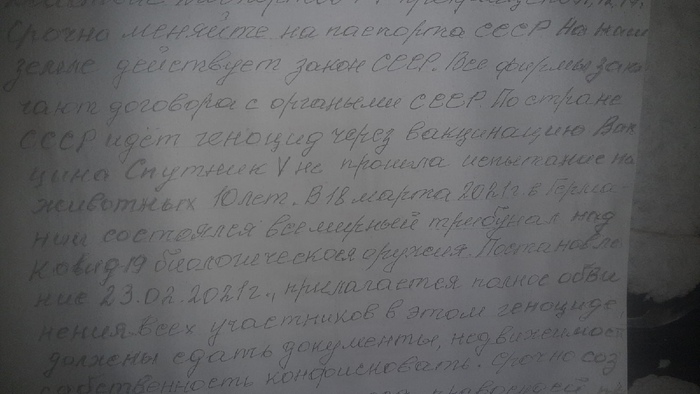 Срочно меняйте на паспорта СССР. На наш
земле действует закон СССР. Все фирмы зак
чают договора с органыми СССР. По стране
СССР идёт геноцид через вакцинацию Вак
цина Спутник V не прошла испытание на
животных 10 лет. В 18 марта 2021г. в Герма-
нии состоялся всемирный трибунал над
Ковид 19 биологическое оружия. Постановле
ние 23.02.2021г., прилагается полное обви
нения всех участников в этом геноциде,
должны сдать документы, недвижимост
собственность конфисковать. Срочно соз